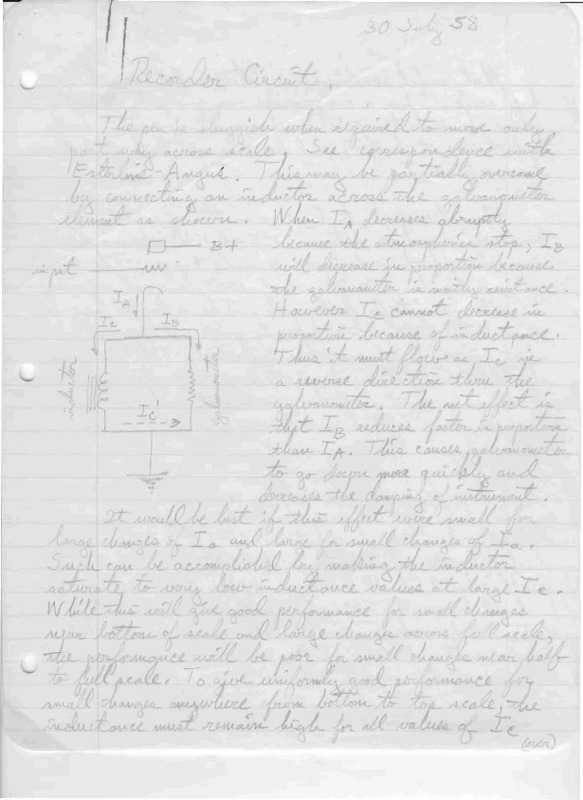 30 July 58
Recorder Circuit.
The pen is sluggish when required to move only
part way across scale. See correspondence with
Esterline-Angus. This may be partially overcome
by connecting an inductor across the galvanometer
element as shown. When I_A decreases abruptly
because the atmospherics stop, I_B
will decrease in proportion because
the galvanometer is mostly resistance.
However I_C cannot decrease in
proportion because of inductance.
Thus it must flow as I_C' in
a reverse direction thru the
galvanometer. The net effect is
that I_B reduces faster in proportion
than I_A. This causes galvanometer
to go down more quickly and
decreases the damping of instrument.
B+
input
I_A
I_C
I_B
inductor
galvanometer
I_C'
It would be best if this effect were small for
large changes of I_a and large for small changes of I_a.
Such can be accomplished by making the inductor
saturate to very low inductance values at large I_C.
While this will give good performance for small changes
near bottom of scale and large changes across full scale,
the performance will be poor for small changes near half
to full scale. To give uniformly good performance for
small changes anywhere from bottom to top scale, the
inductance must remain high for all values of I_C
(over)